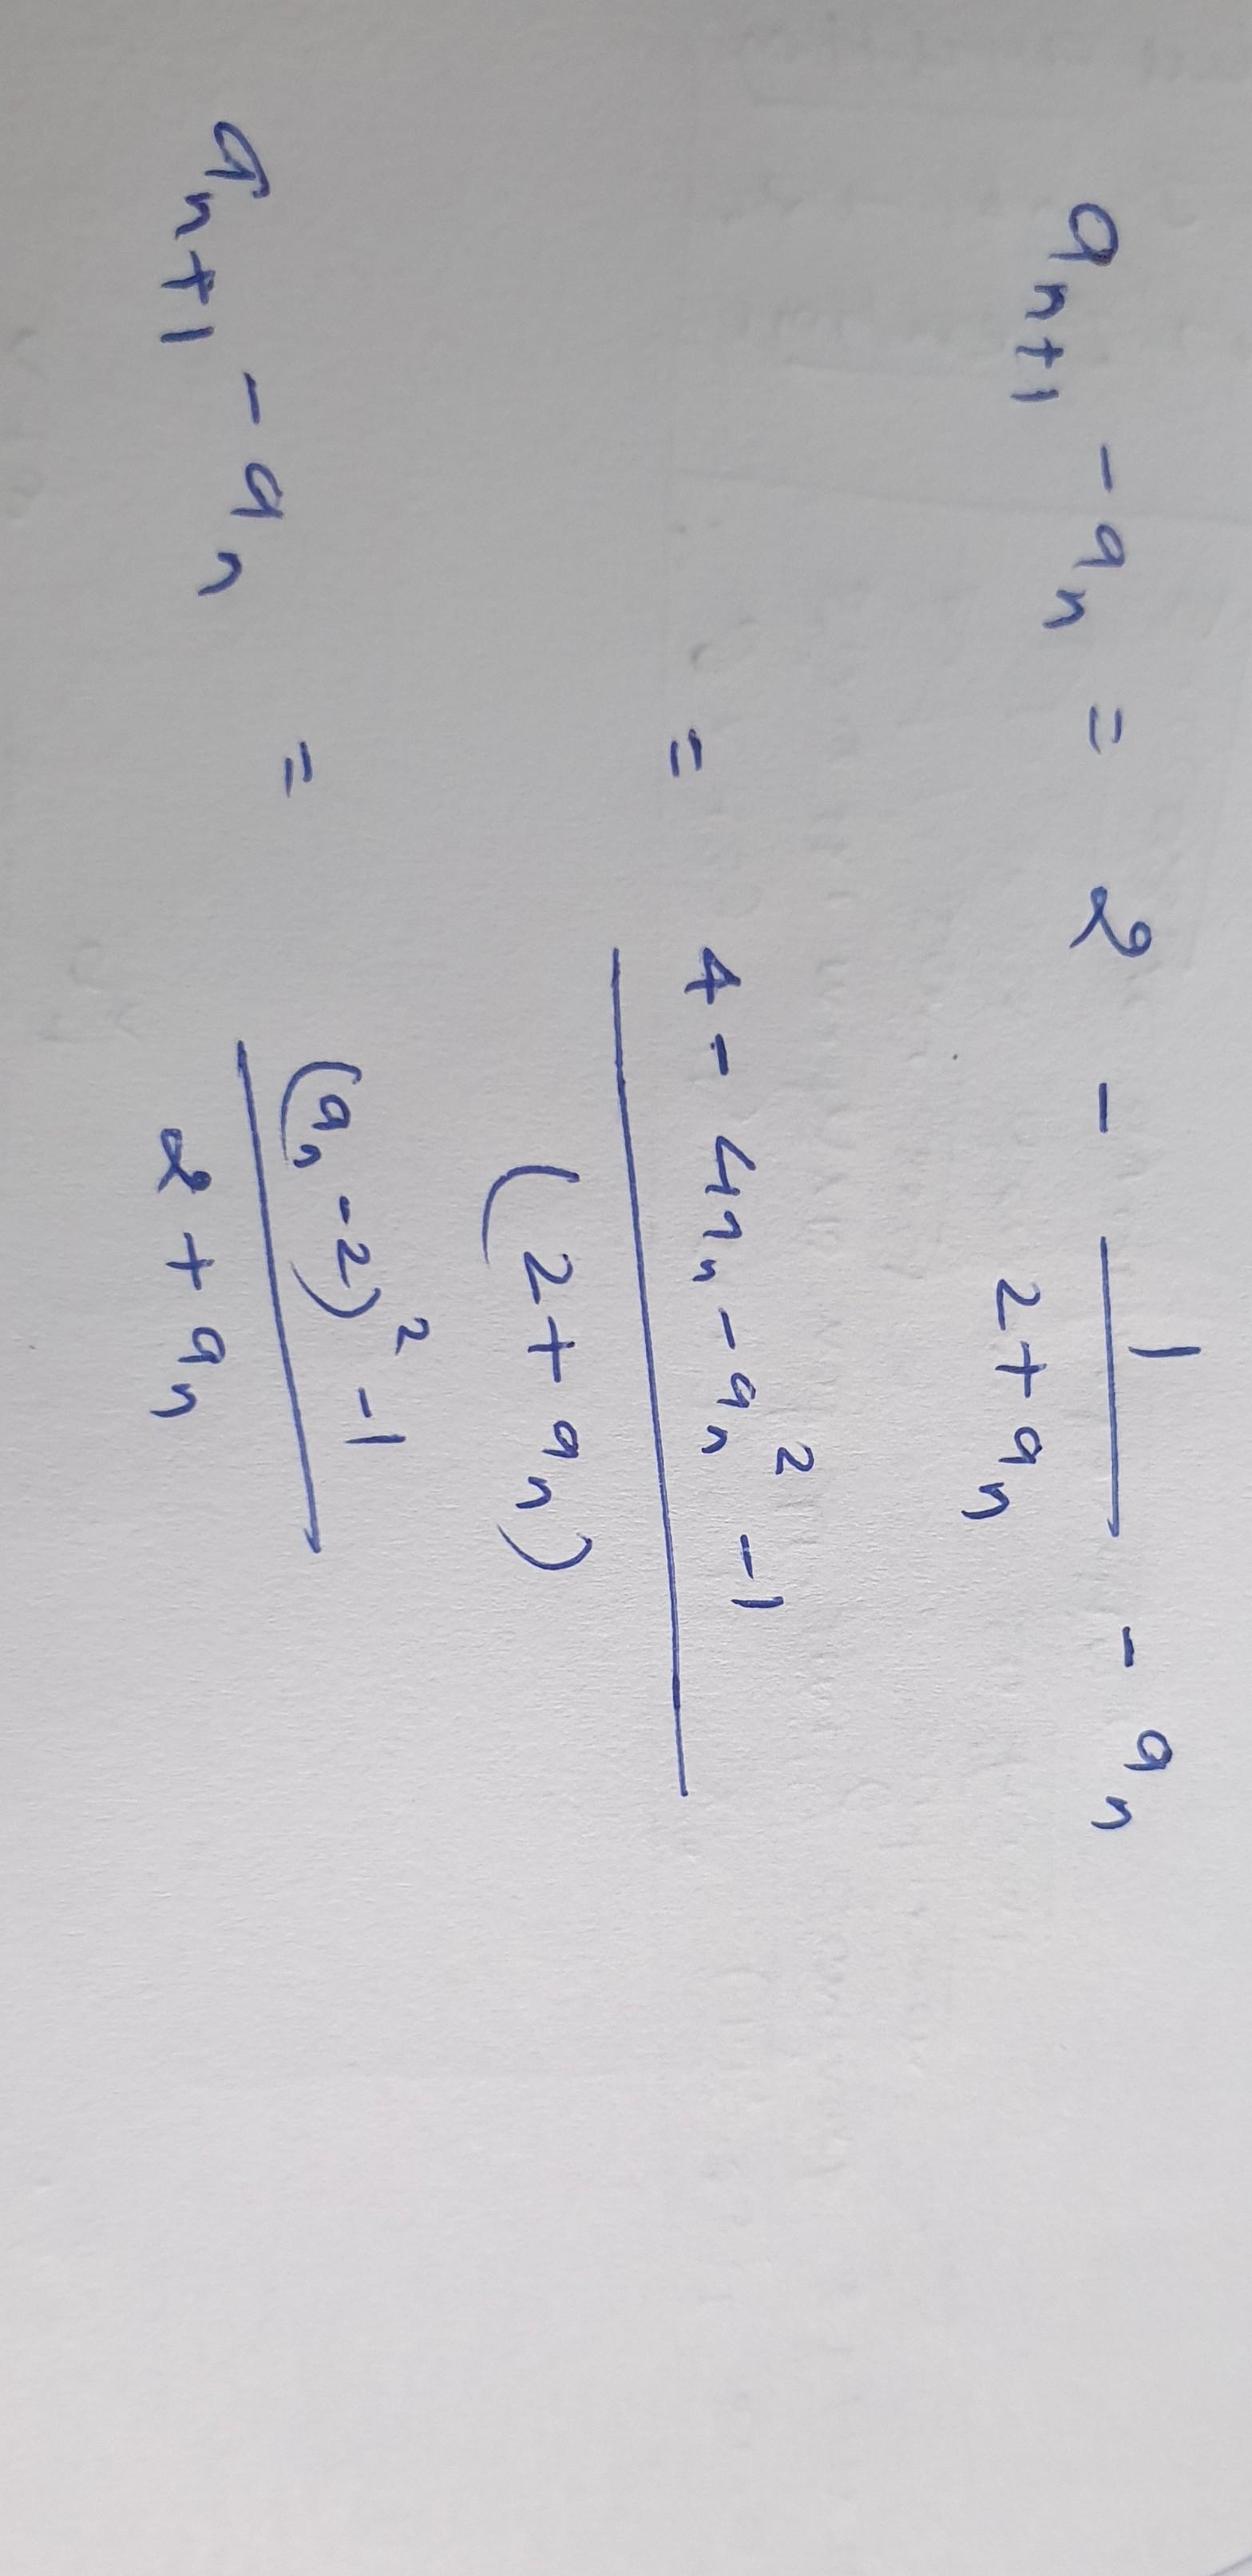 a_{n+1} - a_n = 2 - \frac{1}{2 + a_n} - a_n
= \frac{4 - 4a_n - a_n^2 - 1}{(2 + a_n)}
a_{n+1} - a_n = \frac{(a_n - 2)^2 - 1}{2 + a_n}